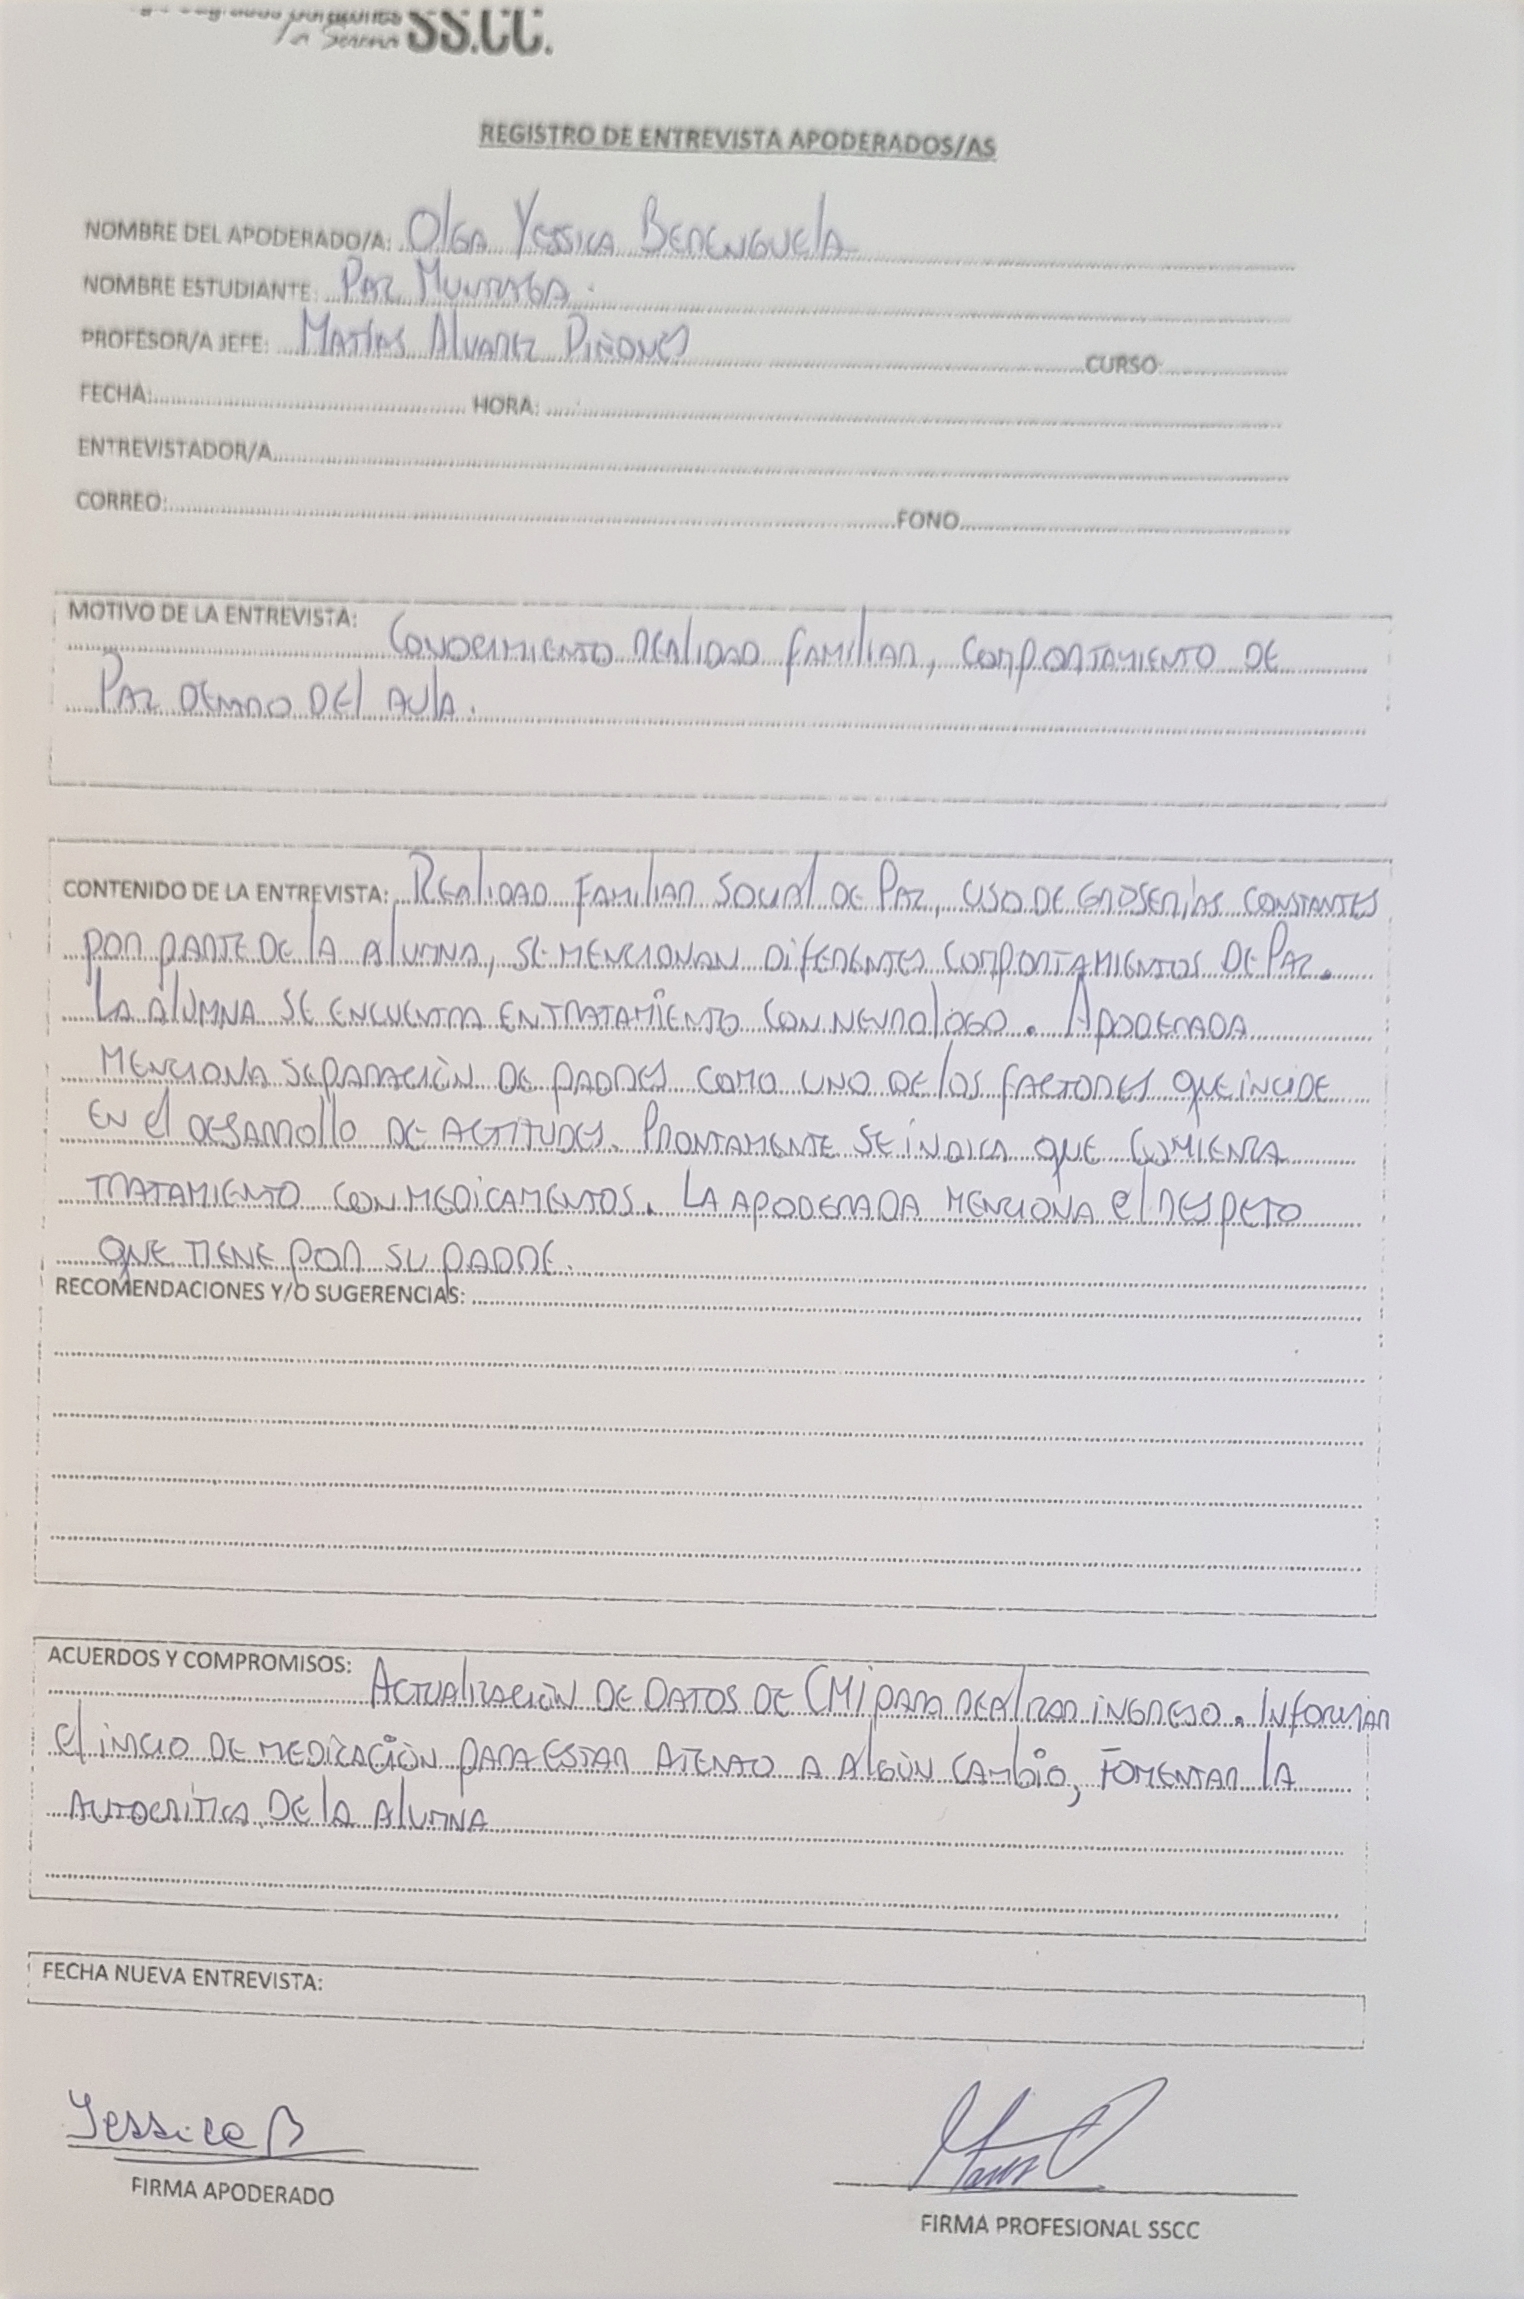 SS.CC.
La Serena
REGISTRO DE ENTREVISTA APODERADOS/AS
NOMBRE DEL APODERADO/A: Olga Yessica Berenguela
NOMBRE ESTUDIANTE: Paz
PROFESOR/A JEFE: Matías Alvarez Piñones CURSO:
FECHA: HORA:
ENTREVISTADOR/A
CORREO: FONO
MOTIVO DE LA ENTREVISTA:
Conocimiento realidad familiar, comportamiento de
Paz dentro del aula.
CONTENIDO DE LA ENTREVISTA: Realidad familiar social de Paz, uso de groserías constantes
por parte de la alumna, se mencionan diferentes comportamientos de Paz.
La alumna se encuentra en tratamiento con neurologo. Apoderada
menciona separación de padres como uno de los factores que incide
en el desarrollo de actitudes. Prontamente se indica que comienza
tratamiento con medicamentos. La apoderada menciona el respeto
que tiene por su padre.
RECOMENDACIONES Y/O SUGERENCIAS:
ACUERDOS Y COMPROMISOS:
Actualización de datos de CMI para realizar ingreso. Informar
el inicio de medicación para estar atento a algún cambio, fomentar la
autocrítica de la alumna
FECHA NUEVA ENTREVISTA:
Yessica B
FIRMA APODERADO
FIRMA PROFESIONAL SSCC